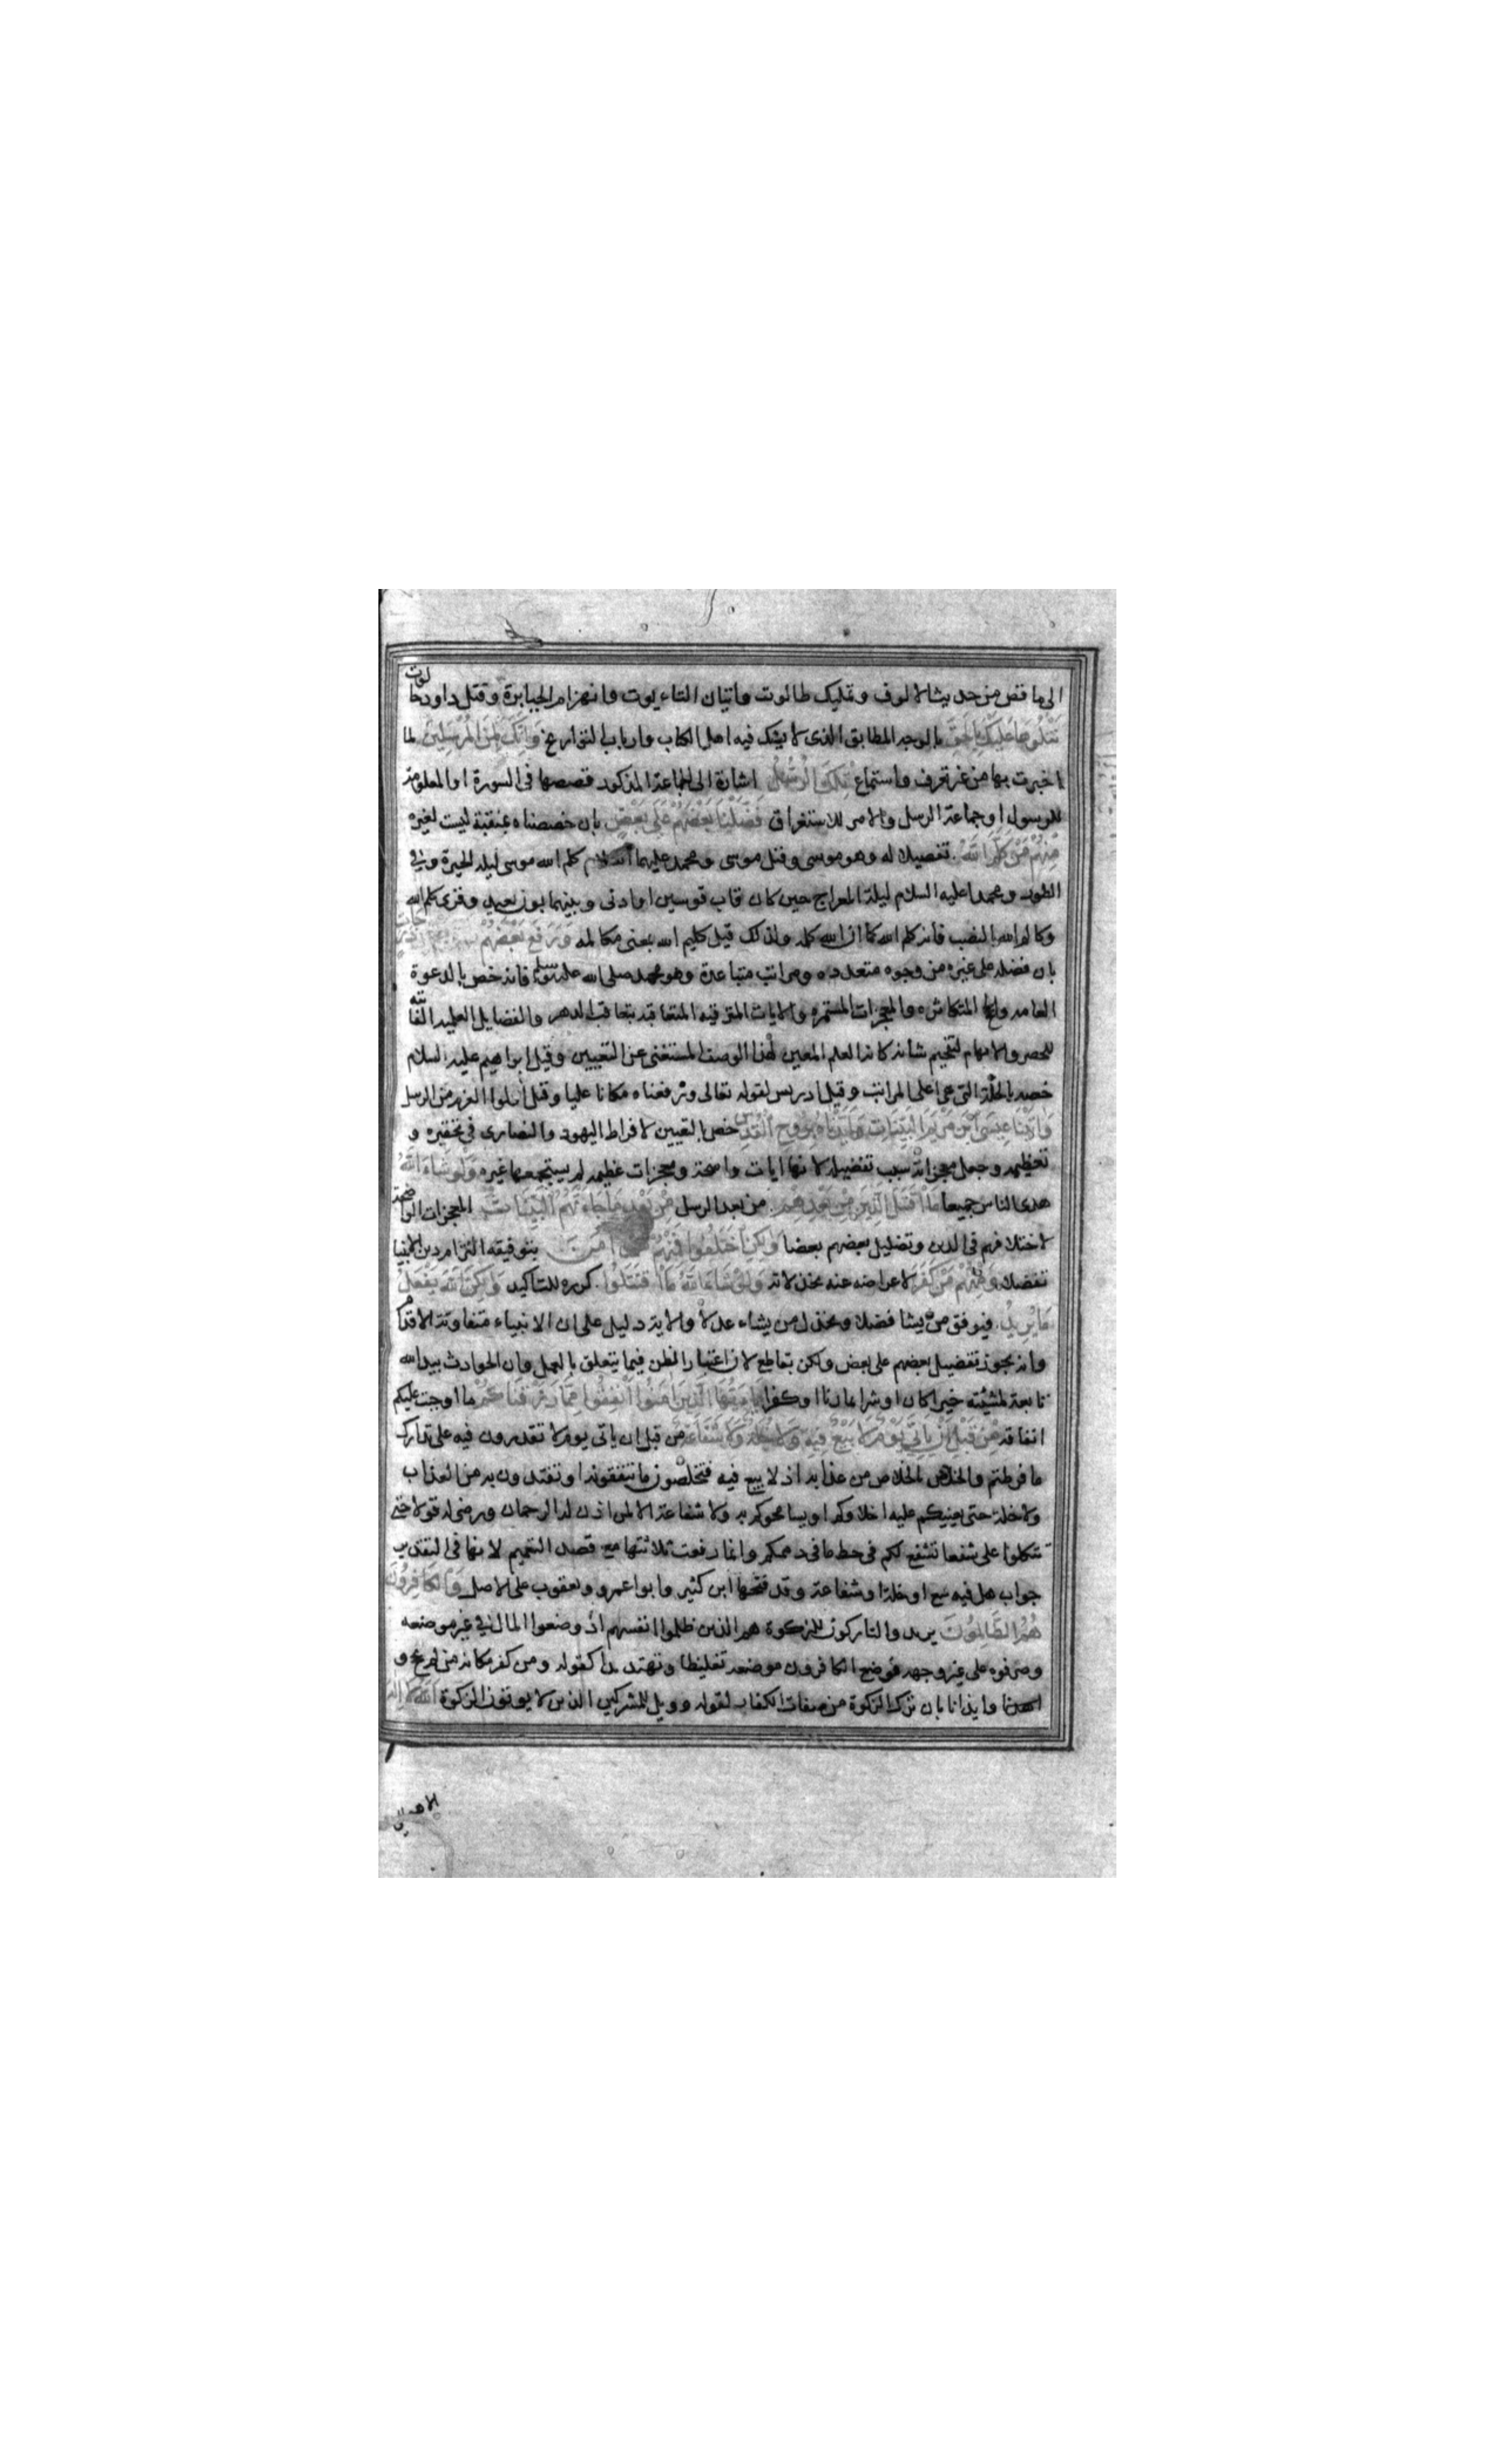 الى ما قص من حديث الالوف وتمليك طالوت واتيان التابوت وانهزام الجبابرة وقتل داود جالوت
نتلوها عليك بالحق بالوجه المطابق الذى لا يشك فيه اهل الكتاب وارباب التواريخ وانك لمن المرسلين لما
اخبرت بها من غير تعرف واستماع تلك الرسل اشارة الى الجماعة المذكور قصصها فى السورة او المعلومة
للرسول او جماعة الرسل والامر للاستغراق فضلنا بعضهم على بعض بان خصصناه بمنقبة ليست لغيره
منهم من كلم الله تفصيلا له وهو موسى وقيل موسى ومحمد عليهما السلام كلم الله موسى ليلة الحيرة وفى
الطور ومحمدا عليه السلام ليلة المعراج حين كان قاب قوسين او ادنى وبينهما بون بعيد وقرئ كلم الله
وكالم الله بالنصب فانه كلم الله كما ان الله كلمه ولذلك قيل كليم الله بمعنى مكالمه ورفع بعضهم درجات
بان فضله على غيره من وجوه متعدده ومراتب متباعدة وهو محمد صلى الله عليه وسلم فانه خص بالدعوة
العامه والحجج المتكاثره والمعجزات المستمره والايات المترقيه المتعاقبه بتعاقب الدهر والفضايل العلميه الفائته
للحصر والابهام لتفخيم شانه كانه العلم المعين لهذا الوصف المستغنى عن التعيين وقيل ابراهيم عليه السلام
خصه بالخلة التى هى اعلى المراتب وقيل ادريس لقوله تعالى ورفعناه مكانا عليا وقيل اولوا العزم من الرسل
واتينا عيسى ابن مريم البينات وايدناه بروح القدس خص بالتعيين لافراط اليهود والنصارى فى تحقيره و
تعظيمه وجعل معجزاته سبب تفضيله لانها ايات واضحة ومعجزات عظيمه لم يستجمعها غيره ولو شاء الله
هدى الناس جميعا ما اقتتل الذين من بعدهم من بعد الرسل من بعد ما جاءتهم البينات المعجزات الواضحة
لاختلافهم فى الدين وتضليل بعضهم بعضا ولكن اختلفوا فمنهم من امن بتوفيقه التزام دين الانبيا
تفضلا ومنهم من كفر لاعراضه عنه بخذلانه ولو شاء الله ما اقتتلوا كرره للتاكيد ولكن الله يفعل
ما يريد فيوفق من يشا فضلا ويخذل من يشاء عدلا والاية دليل على ان الانبياء متفاوتة الاقدام
وانه يجوز تفضيل بعضهم على بعض ولكن بقاطع لان اعتبار الظن فيما يتعلق بالعمل وان الحوادث بيد الله
تابعة لمشيته خيرا كان او شرا ايمانا او كفرا يا ايها الذين امنوا انفقوا مما رزقناكم ما اوجبت عليكم
انفاقه من قبل ان ياتى يوم لا بيع فيه ولا خلة ولا شفاعة من قبل ان ياتى يوم لا تقدرون فيه على تدارك
ما فرطتم والخلاص من عذابه اذ لا بيع فيه فتحصلون ما تنفقونه او تفتدون به من العذاب
ولا خلة حتى يعينكم عليه اخلاوكم او يسامحوكم به ولا شفاعة الا لمن اذن له الرحمان ورضى له قولا حتى
تتكلوا على شفعا تشفع لكم فى حط ما فى ذممكم وانما رفعت ثلاثتها مع قصد التعميم لانها فى التقدير
جواب هل فيه بيع او خلة او شفاعة وقد فتحها ابن كثير وابوا عمرو ويعقوب على الاصل والكافرون
هم الظالمون يريد والتاركون للزكوة هم الذين ظلموا انفسهم اذ وضعوا المال فى غير موضعه
وصرفوه على غير وجهه فوضع الكافرون موضعه تغليظا وتهديدا كقوله ومن كفر مكان من لم يحج و
ايذانا بان ترك الزكوة من صفات الكفار لقوله وويل للمشركين الذين لا يوتون الزكوة الله لا اله